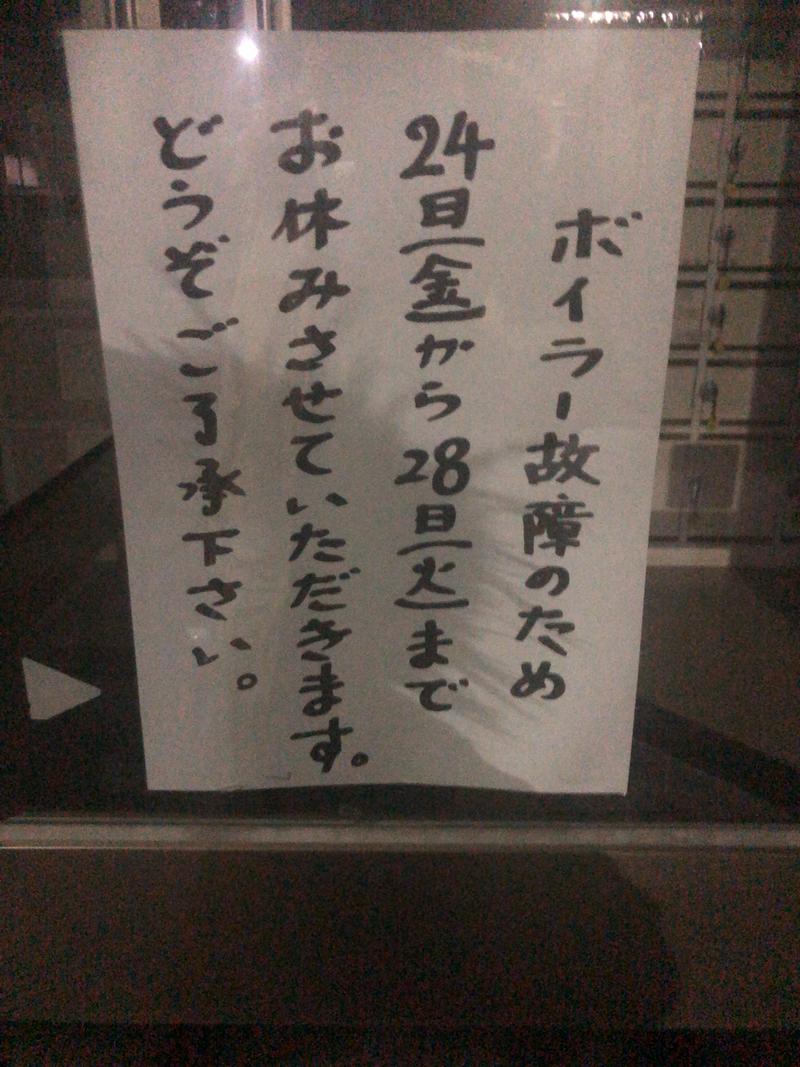 ボイラー故障のため
24日(金)から28日(火)まで
お休みさせていただきます。
どうぞごる承下さい。